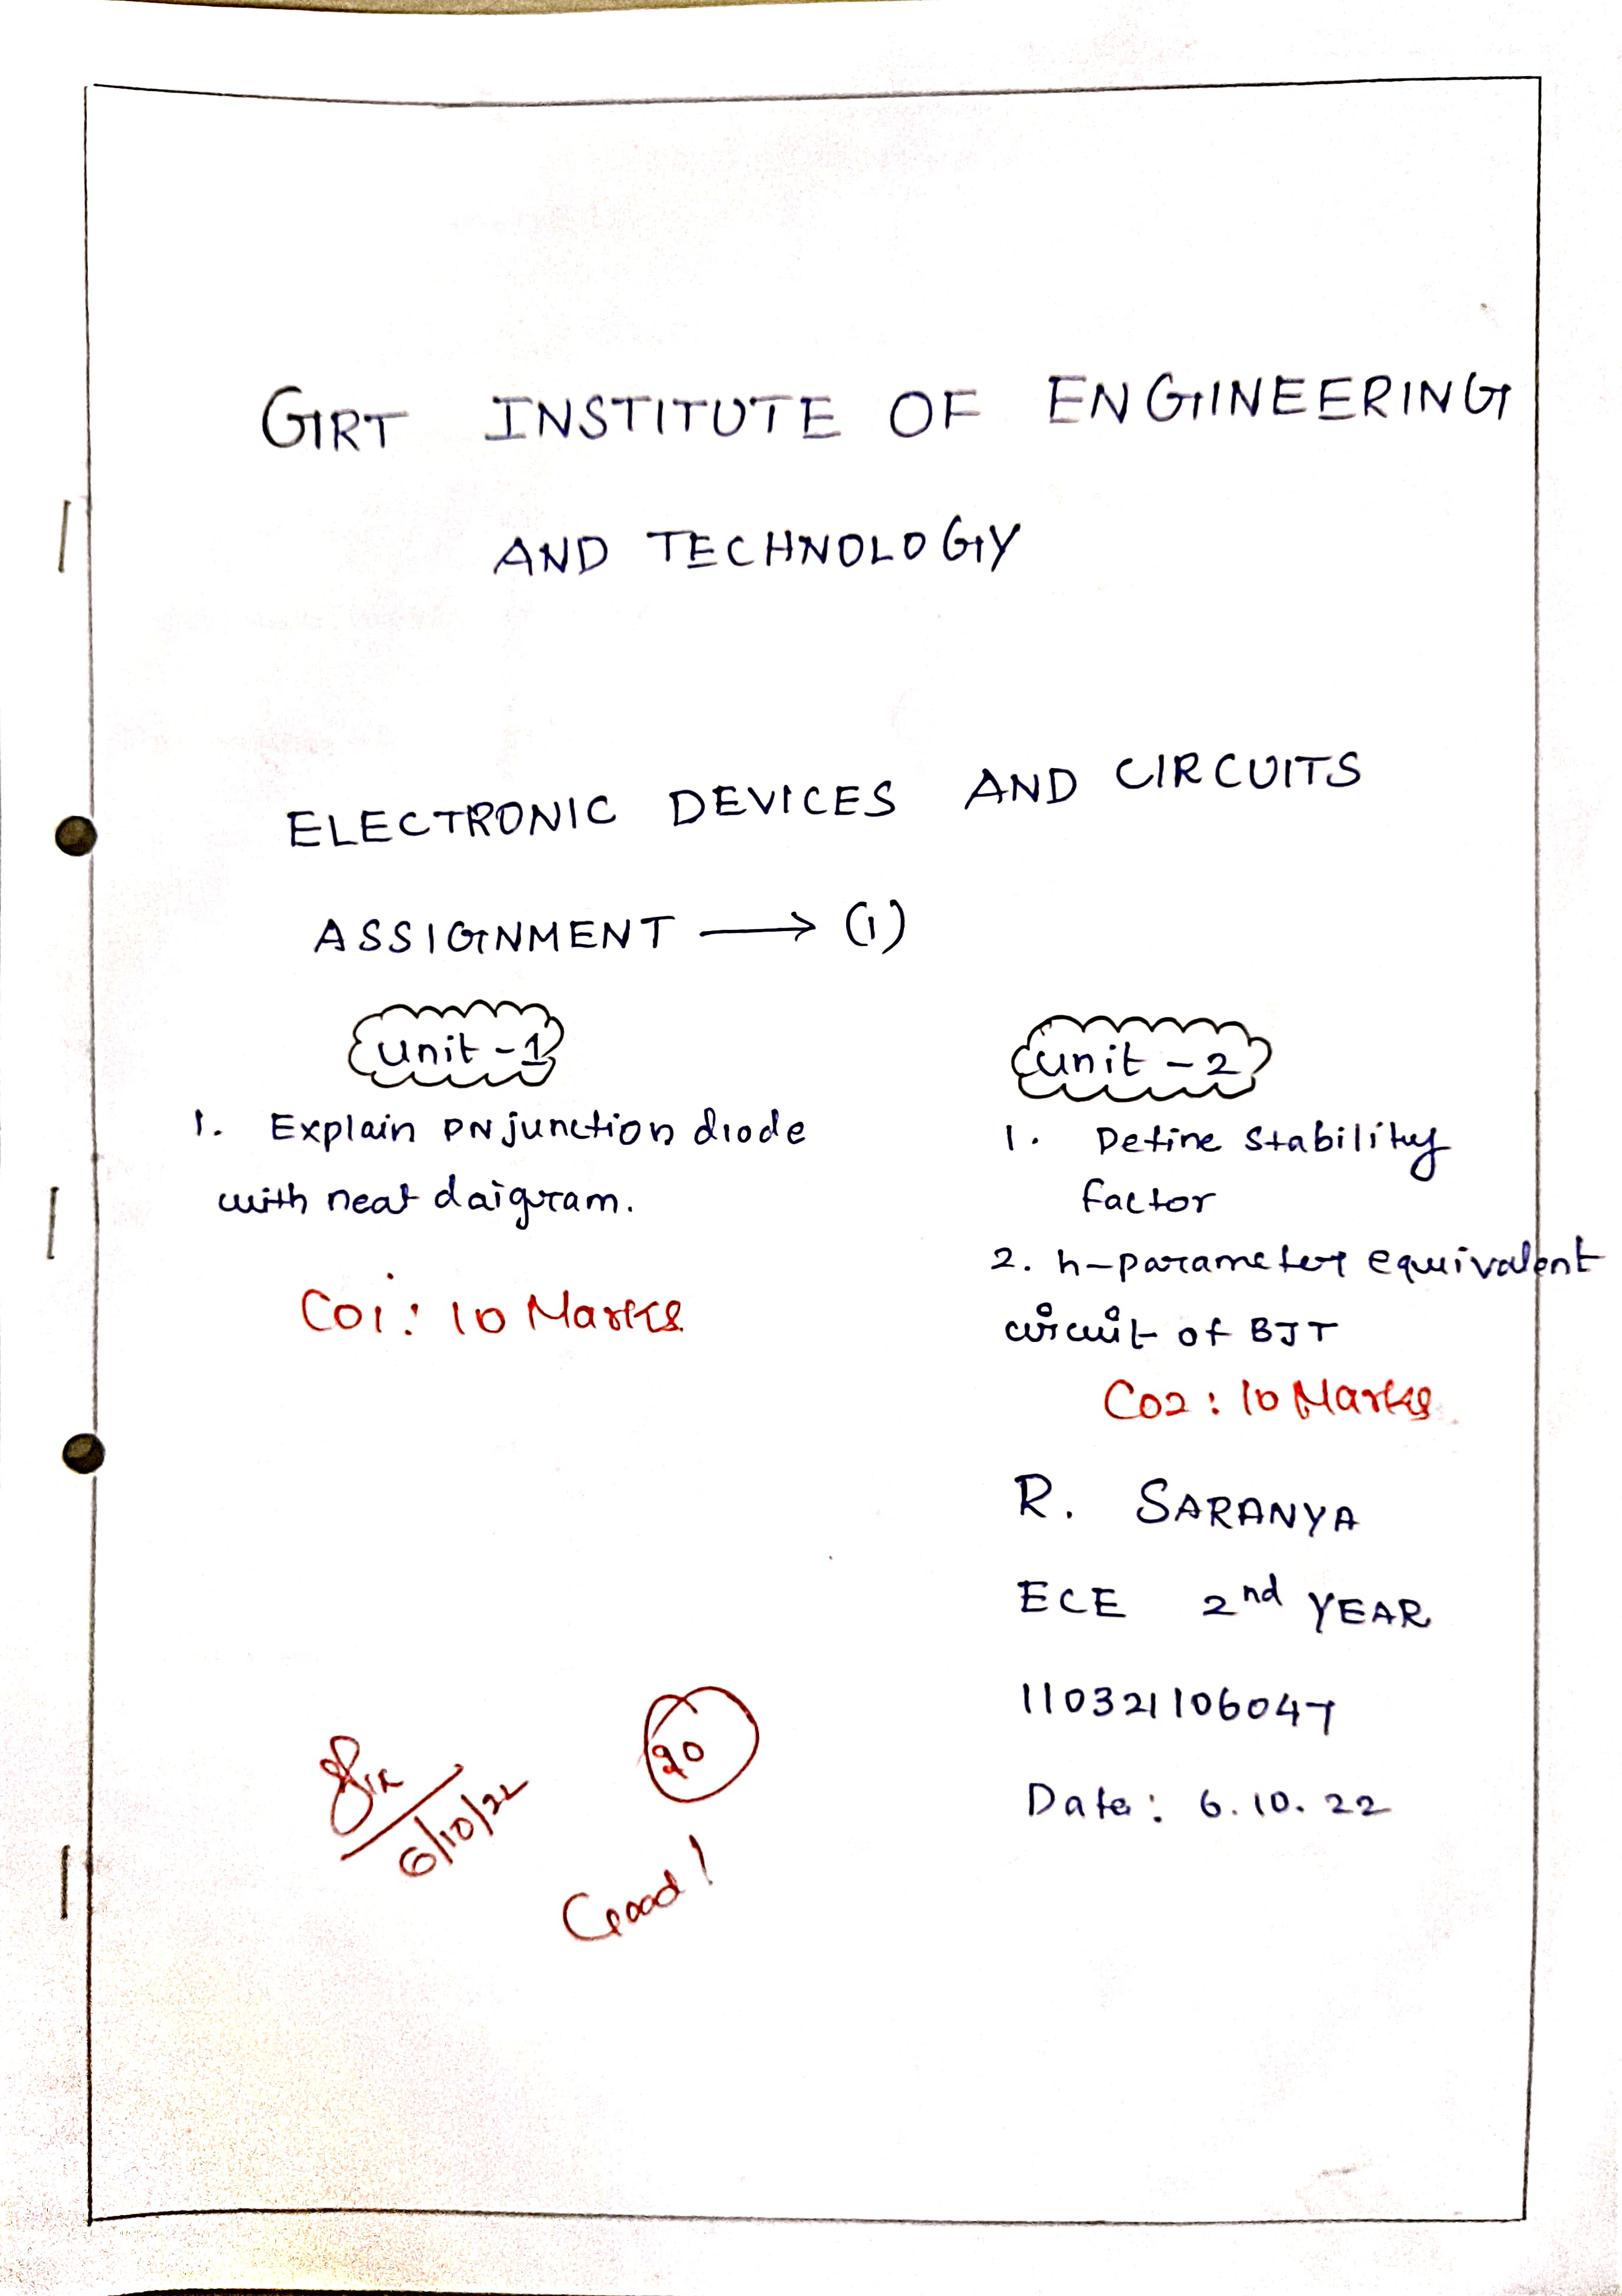 GRT INSTITUTE OF ENGINEERING
AND TECHNOLOGY
ELECTRONIC DEVICES AND CIRCUITS
ASSIGNMENT → (1)
Unit -1
1. Explain PN junction diode
with neat daigram.
CO1: 10 Marks
Unit - 2
1. Define stability
factor
2. h-parameter equivalent
circuit of BJT
CO2: 10 Marks
R. SARANYA
ECE 2nd YEAR
110321106047
Date: 6.10.22
6/10/22
90
Good!